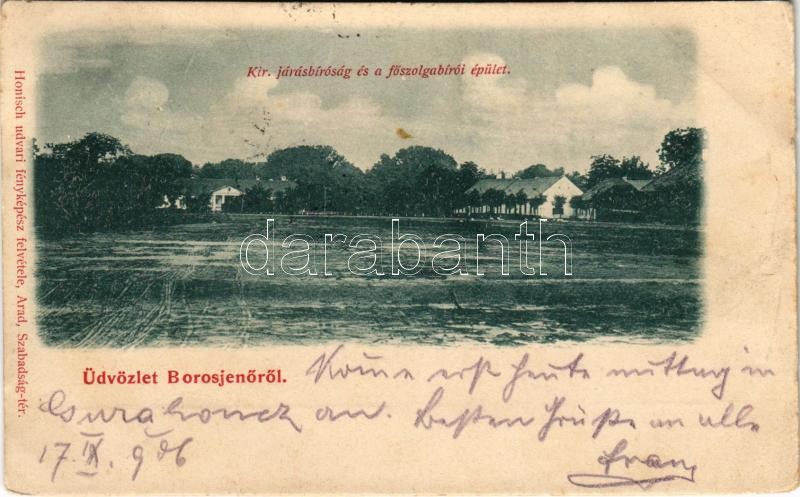 Kir. járásbíróság és a főszolgabírói épület.
Honisch udvari fényképész felvétele, Arad, Szabadság-tér.
darabanth
Üdvözlet Borosjenőről.
Komme erst heute mittag in
an. Besten Grüße an alle
17. IX. 906
Franz